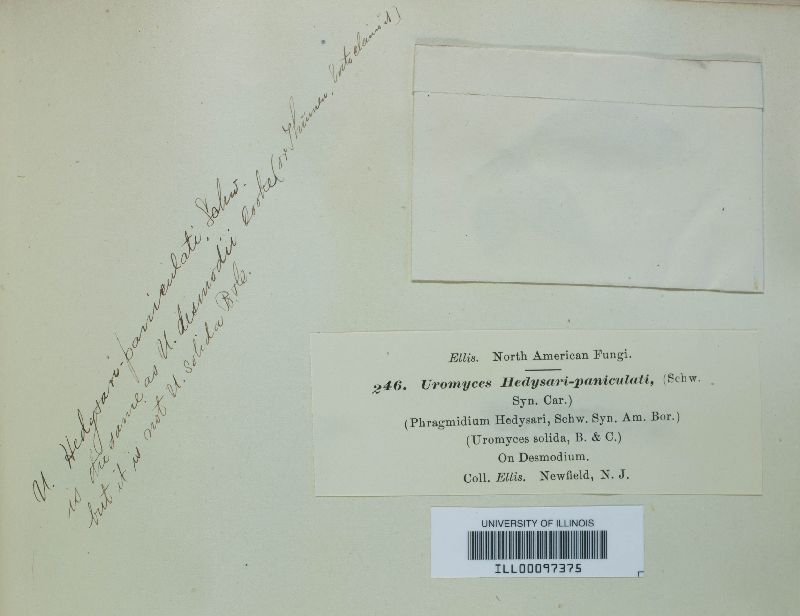 U. Hedysari-paniculati, Schw.
is the same as U. desmodii Cooke (or Thümen,
but it is not U. solida B&C.
Ellis. North American Fungi.
246. Uromyces Hedysari-paniculati, (Schw.
Syn. Car.)
(Phragmidium Hedysari, Schw. Syn. Am. Bor.)
(Uromyces solida, B. & C.)
On Desmodium.
Coll. Ellis. Newfield, N. J.
UNIVERSITY OF ILLINOIS
ILL00097375